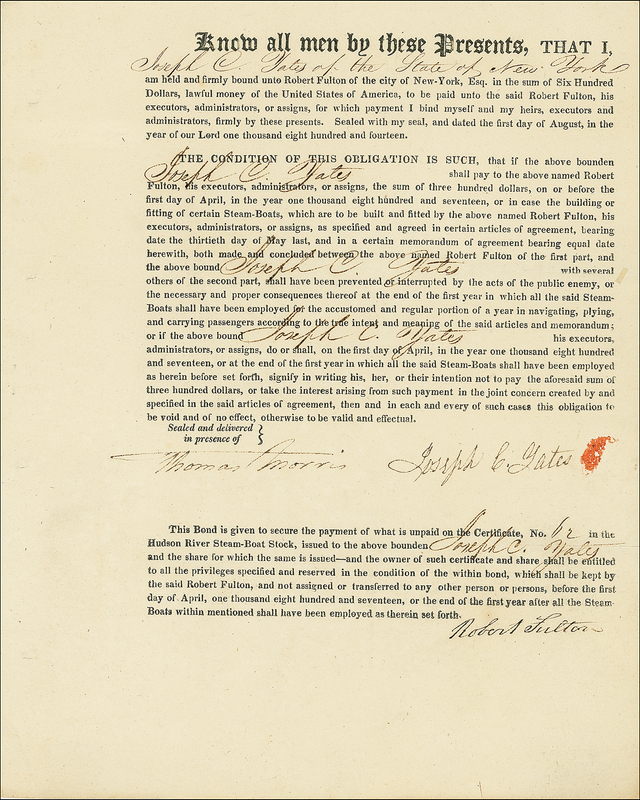 Know all men by these Presents, THAT I,
Joseph C. Yates of the State of New York
am held and firmly bound unto Robert Fulton of the city of New-York, Esq. in the sum of Six Hundred
Dollars, lawful money of the United States of America, to be paid unto the said Robert Fulton, his
executors, administrators, or assigns, for which payment I bind myself and my heirs, executors and
administrators, firmly by these presents. Sealed with my seal, and dated the first day of August, in the
year of our Lord one thousand eight hundred and fourteen.
THE CONDITION OF THIS OBLIGATION IS SUCH, that if the above bounden
Joseph C. Yates shall pay to the above named Robert
Fulton, his executors, administrators, or assigns, the sum of three hundred dollars, on or before the
first day of April, in the year one thousand eight hundred and seventeen, or in case the building or
fitting of certain Steam-Boats, which are to be built and fitted by the above named Robert Fulton, his
executors, administrators, or assigns, as specified and agreed in certain articles of agreement, bearing
date the thirtieth day of May last, and in a certain memorandum of agreement bearing equal date
herewith, both made and concluded between the above named Robert Fulton of the first part, and
the above bound Joseph C. Yates with several
others of the second part, shall have been prevented or interrupted by the acts of the public enemy, or
the necessary and proper consequences thereof at the end of the first year in which all the said Steam-
Boats shall have been employed for the accustomed and regular portion of a year in navigating, plying,
and carrying passengers according to the true intent and meaning of the said articles and memorandum;
or if the above bound Joseph C. Yates his executors,
administrators, or assigns, do or shall, on the first day of April, in the year one thousand eight hundred
and seventeen, or at the end of the first year in which all the said Steam-Boats shall have been employed
as herein before set forth, signify in writing his, her, or their intention not to pay the aforesaid sum of
three hundred dollars, or take the interest arising from such payment in the joint concern created by and
specified in the said articles of agreement, then and in each and every of such cases this obligation to
be void and of no effect, otherwise to be valid and effectual.
Sealed and delivered
in presence of
Thomas Morris Joseph C. Yates
This Bond is given to secure the payment of what is unpaid on the Certificate, No. 62 in the
Hudson River Steam-Boat Stock, issued to the above bounden Joseph C. Yates
and the share for which the same is issued—and the owner of such certificate and share shall be entitled
to all the privileges specified and reserved in the condition of the within bond, which shall be kept by
the said Robert Fulton, and not assigned or transferred to any other person or persons, before the first
day of April, one thousand eight hundred and seventeen, or the end of the first year after all the Steam-
Boats within mentioned shall have been employed as therein set forth.
Robert Fulton